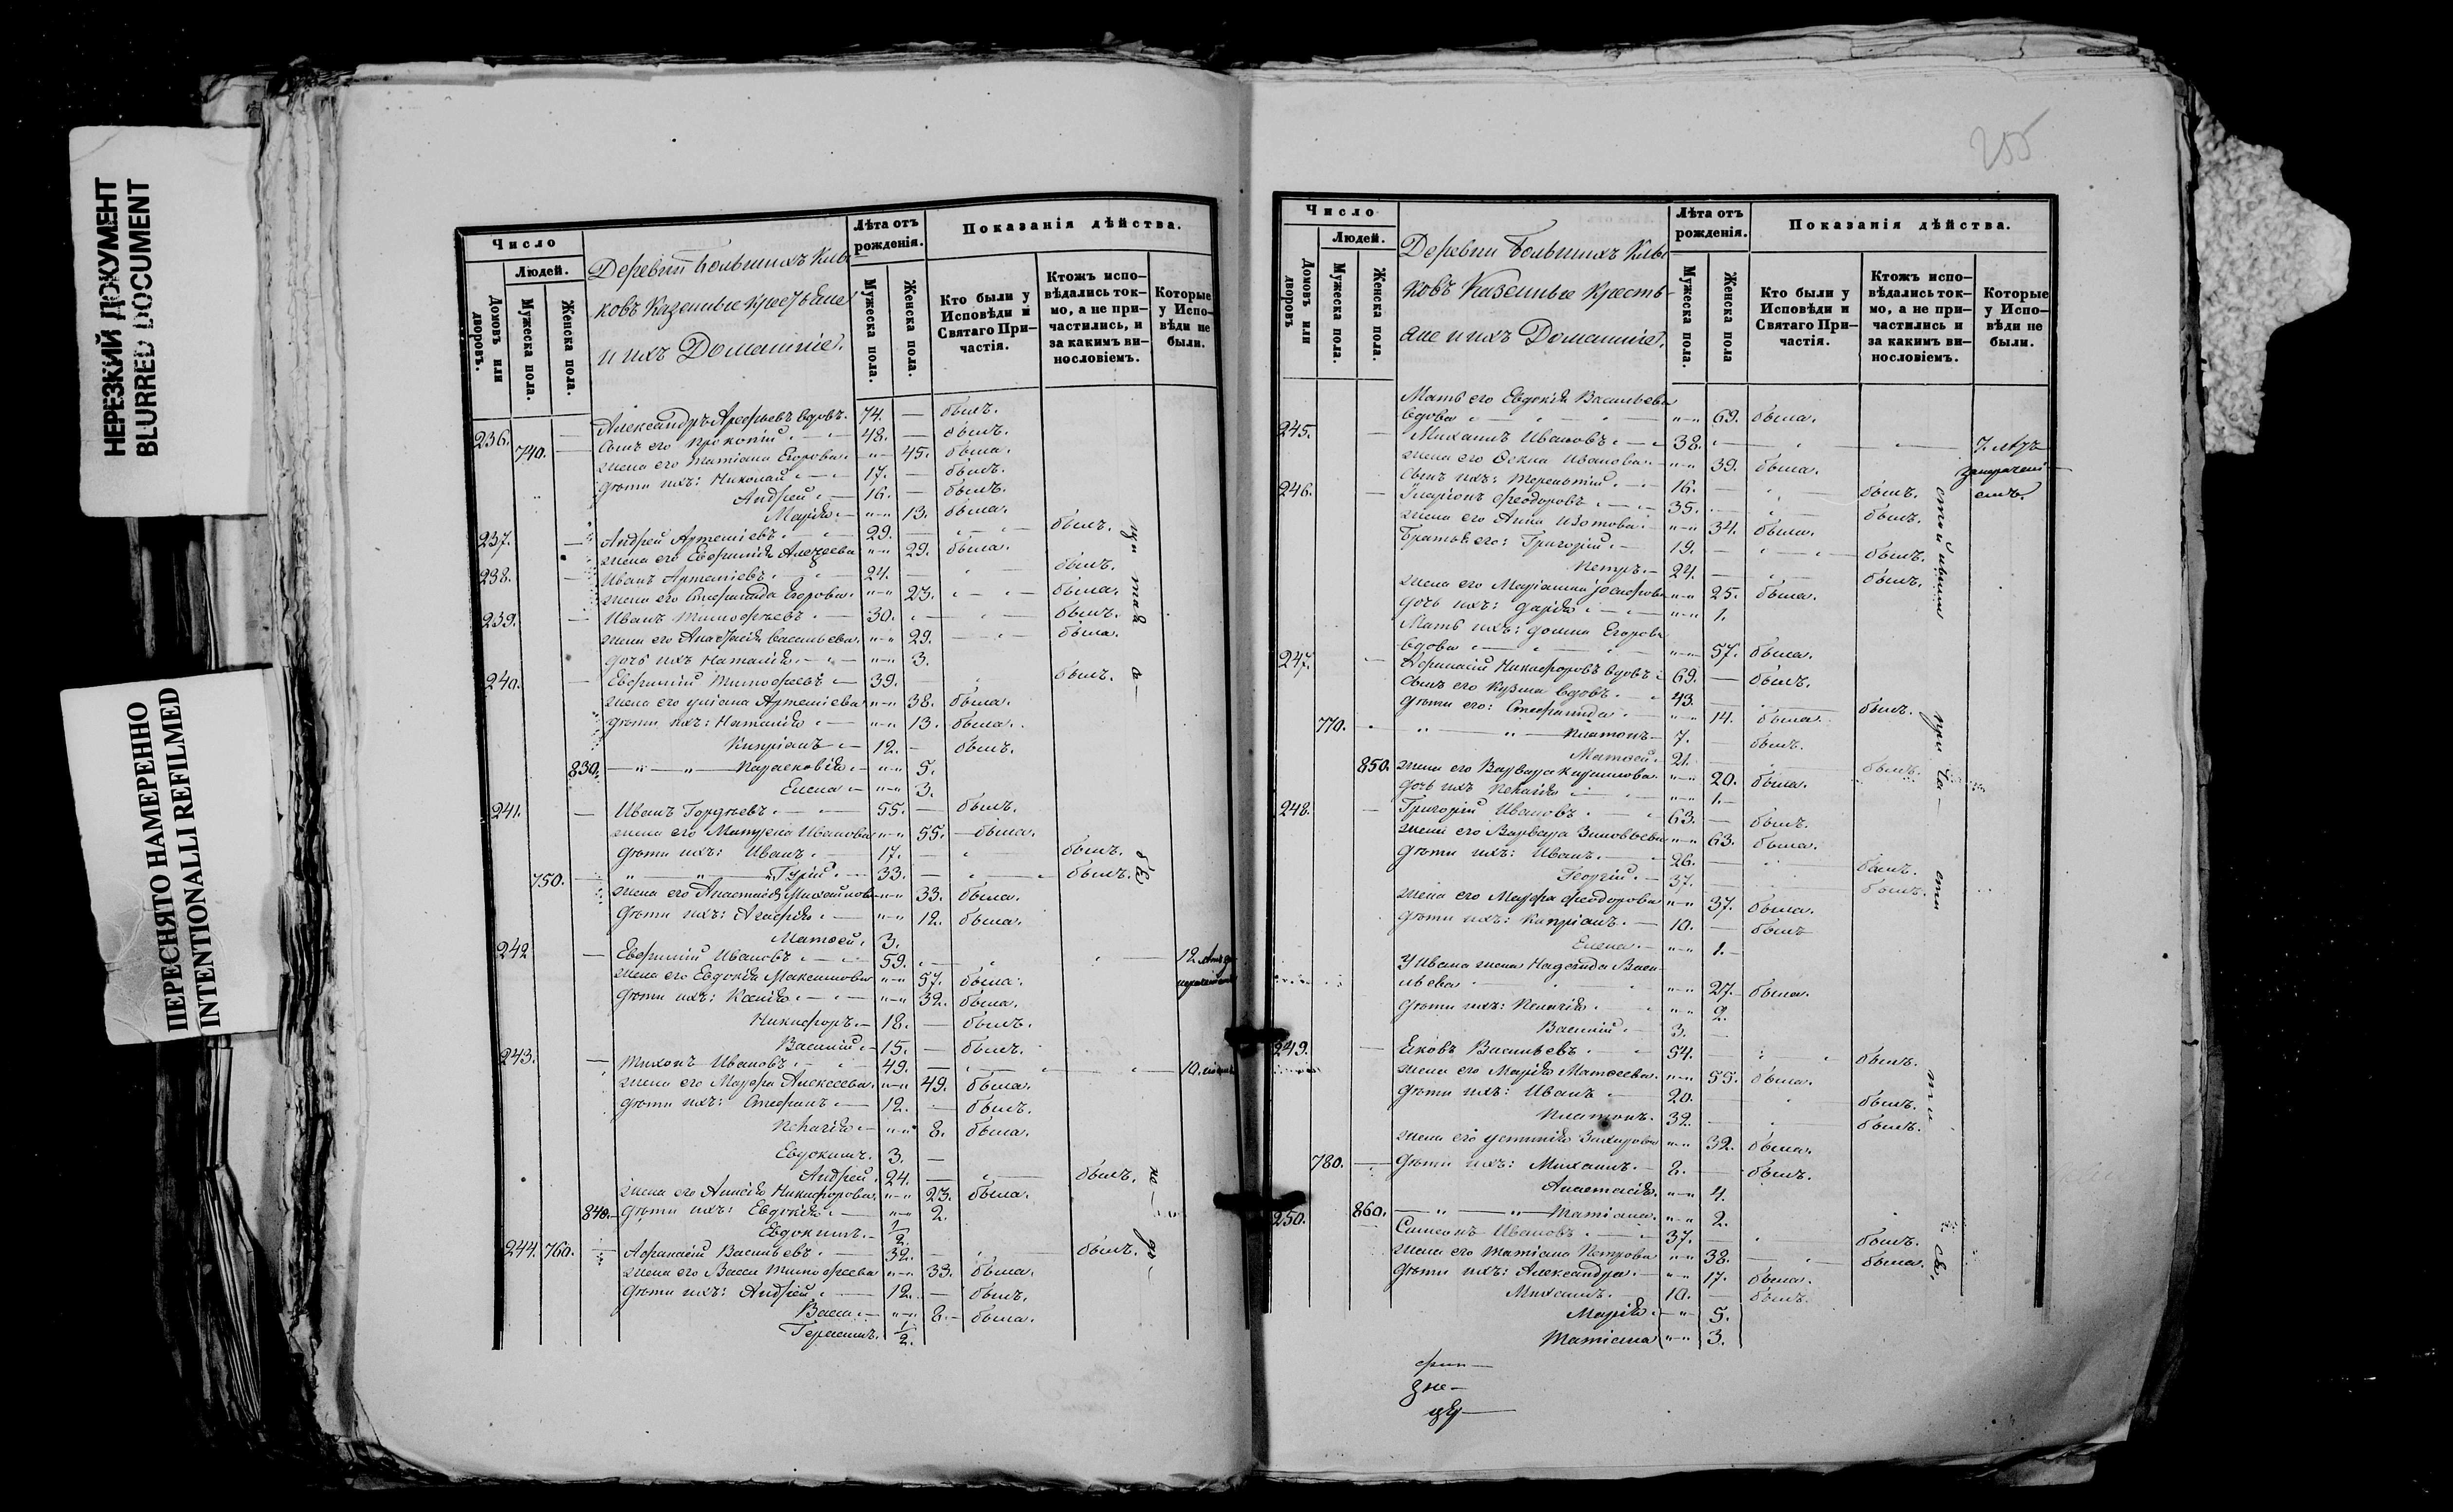 НЕРЕЗКИЙ ДОКУМЕНТ
BLURRED DOCUMENT
ПЕРЕСНЯТО НАМЕРЕННО
INTENTIONALLI REFILMED
Число
Людей.
Домовъ или дворовъ.
Мужеска пола.
Женска пола.
Деревни Большихъ
ковъ Казенные Крестьяне
и ихъ Домашніе.
Лѣта отъ рожденія.
Мужеска пола.
Женска пола.
Показанія дѣйства.
Кто были у Исповѣди и Святаго При-частія.
Ктожъ испо-вѣдались ток-мо, а не при-частились, и за какимъ ви-нословіемъ.
Которые у Испо-вѣди не были.
236. Александръ Арефьевъ вдовъ. 74. — былъ.
740. Сынъ его Прокопій 48. — былъ.
жена его Татіана Егорова 45. была.
дѣти ихъ: Николай 17. — былъ.
Андрей 16. — былъ.
Марія 13. была.
237. Андрей Артеміевъ 29. — былъ.
жена его Евфимія 29. была.
238. Иванъ Артеміевъ 24. — былъ.
жена его Степанида Егорова 23. была.
239. Иванъ Тимофѣевъ 30. былъ.
жена его Анастасія Васильева 29. была.
дочь ихъ Наталія 3.
240. Евфимій Тимофеевъ 39. былъ.
жена его Уліана Артеміева 38. была.
дѣти ихъ: Наталія 13. была.
Кипріанъ 12. — былъ.
830. Парасковія 5.
Елена 3.
241. Иванъ Гордѣевъ 55. — былъ.
жена его Матрена Иванова 55. была.
дѣти ихъ: Иванъ 17. — былъ.
750. Гурій 33. — былъ.
жена его Анастасія 33. была.
дѣти ихъ: Агафія 12. была.
Матѳей 3.
242 Евфимій Ивановъ 59. 12
жена его Евдокія Максимова 57. была.
дѣти ихъ: Ксенія 32. была.
Никифоръ 18. — былъ.
Василій 15. — былъ.
243. Тихонъ Ивановъ 49. 10.
жена его Марфа Алексеева 49. была.
дѣти ихъ: Стефанъ 12. былъ.
Пелагія 8. была.
Евдокимъ 3. —
Андрей 24. — былъ.
жена его Анисія Никифорова 23. была.
840. дѣти ихъ: Евдокія 2.
Евдокимъ 1/2.
244. 760. Афанасій Васильевъ 32. былъ.
жена его Васса Тимофеева 33. была.
дѣти ихъ: Андрей 12. — былъ.
Васса 8. была.
Герасимъ 1/2.
255
Число
Людей.
Домовъ или дворовъ
Мужеска пола.
Женска пола.
Деревни Большихъ
ковъ Казенные Кресть-
яне и ихъ Домашніе.
Лѣта отъ рожденія.
Мужеска пола.
Женска пола
Показанія дѣйства.
Кто были у Исповѣди и Святаго При-частія.
Ктожъ испо-вѣдались ток-мо, а не при-частились и за какимъ ви-нословіемъ.
Которые у Испо-вѣди не были.
Мать его Евдокія Васильева
вдова 69. была.
245. Михаилъ Ивановъ 38. 7. лѣтъ
жена его Ѳекла Иванова 39. была.
сынъ ихъ: Терентій 16. былъ.
246. Иларіонъ Феодоровъ 35. былъ.
жена его Анна Изотова 34. была.
Братья его: Григорій 19. — былъ.
Петръ 24. былъ.
жена его Маріамна 25. была.
дочь ихъ: Дарія 1.
Мать ихъ: Домна Егорова
вдова 57. была.
247. Афанасій Никифоровъ вдовъ 69. — былъ.
сынъ его Кузма вдовъ 43. былъ.
дѣти его: Степанида 14. была.
770. Платонъ 7. былъ.
Матѳей 21. былъ.
850. жена его Варвара 20. была.
дочь ихъ Пелагія 1.
248. Григорій Ивановъ 63. — былъ.
жена его Варвара Зиновьева 63. была.
дѣти ихъ: Иванъ 26. былъ.
Георгій 37. былъ.
жена его Марфа Феодорова 37. была.
дѣти ихъ: Кипріанъ 10. — былъ
Елена 1.
У Ивана жена Надежда Васи-
льева 27. была.
дѣти ихъ: Пелагія 2.
Василій 3.
249. Яковъ Васильевъ 54. былъ.
жена его Марія Матѳеева 55. была.
дѣти ихъ: Иванъ 20. былъ.
Платонъ 32. былъ.
жена его Устинія Захарова 32. была.
780. дѣти ихъ: Михаилъ 8. — былъ.
Анастасія 4.
860. Татіана 2.
250. Симеонъ Ивановъ 37. былъ.
жена его Татіана Петрова 38. была.
дѣти ихъ: Александра 17. была.
Михаилъ 10. — былъ.
Марія 5.
Татіана 3.